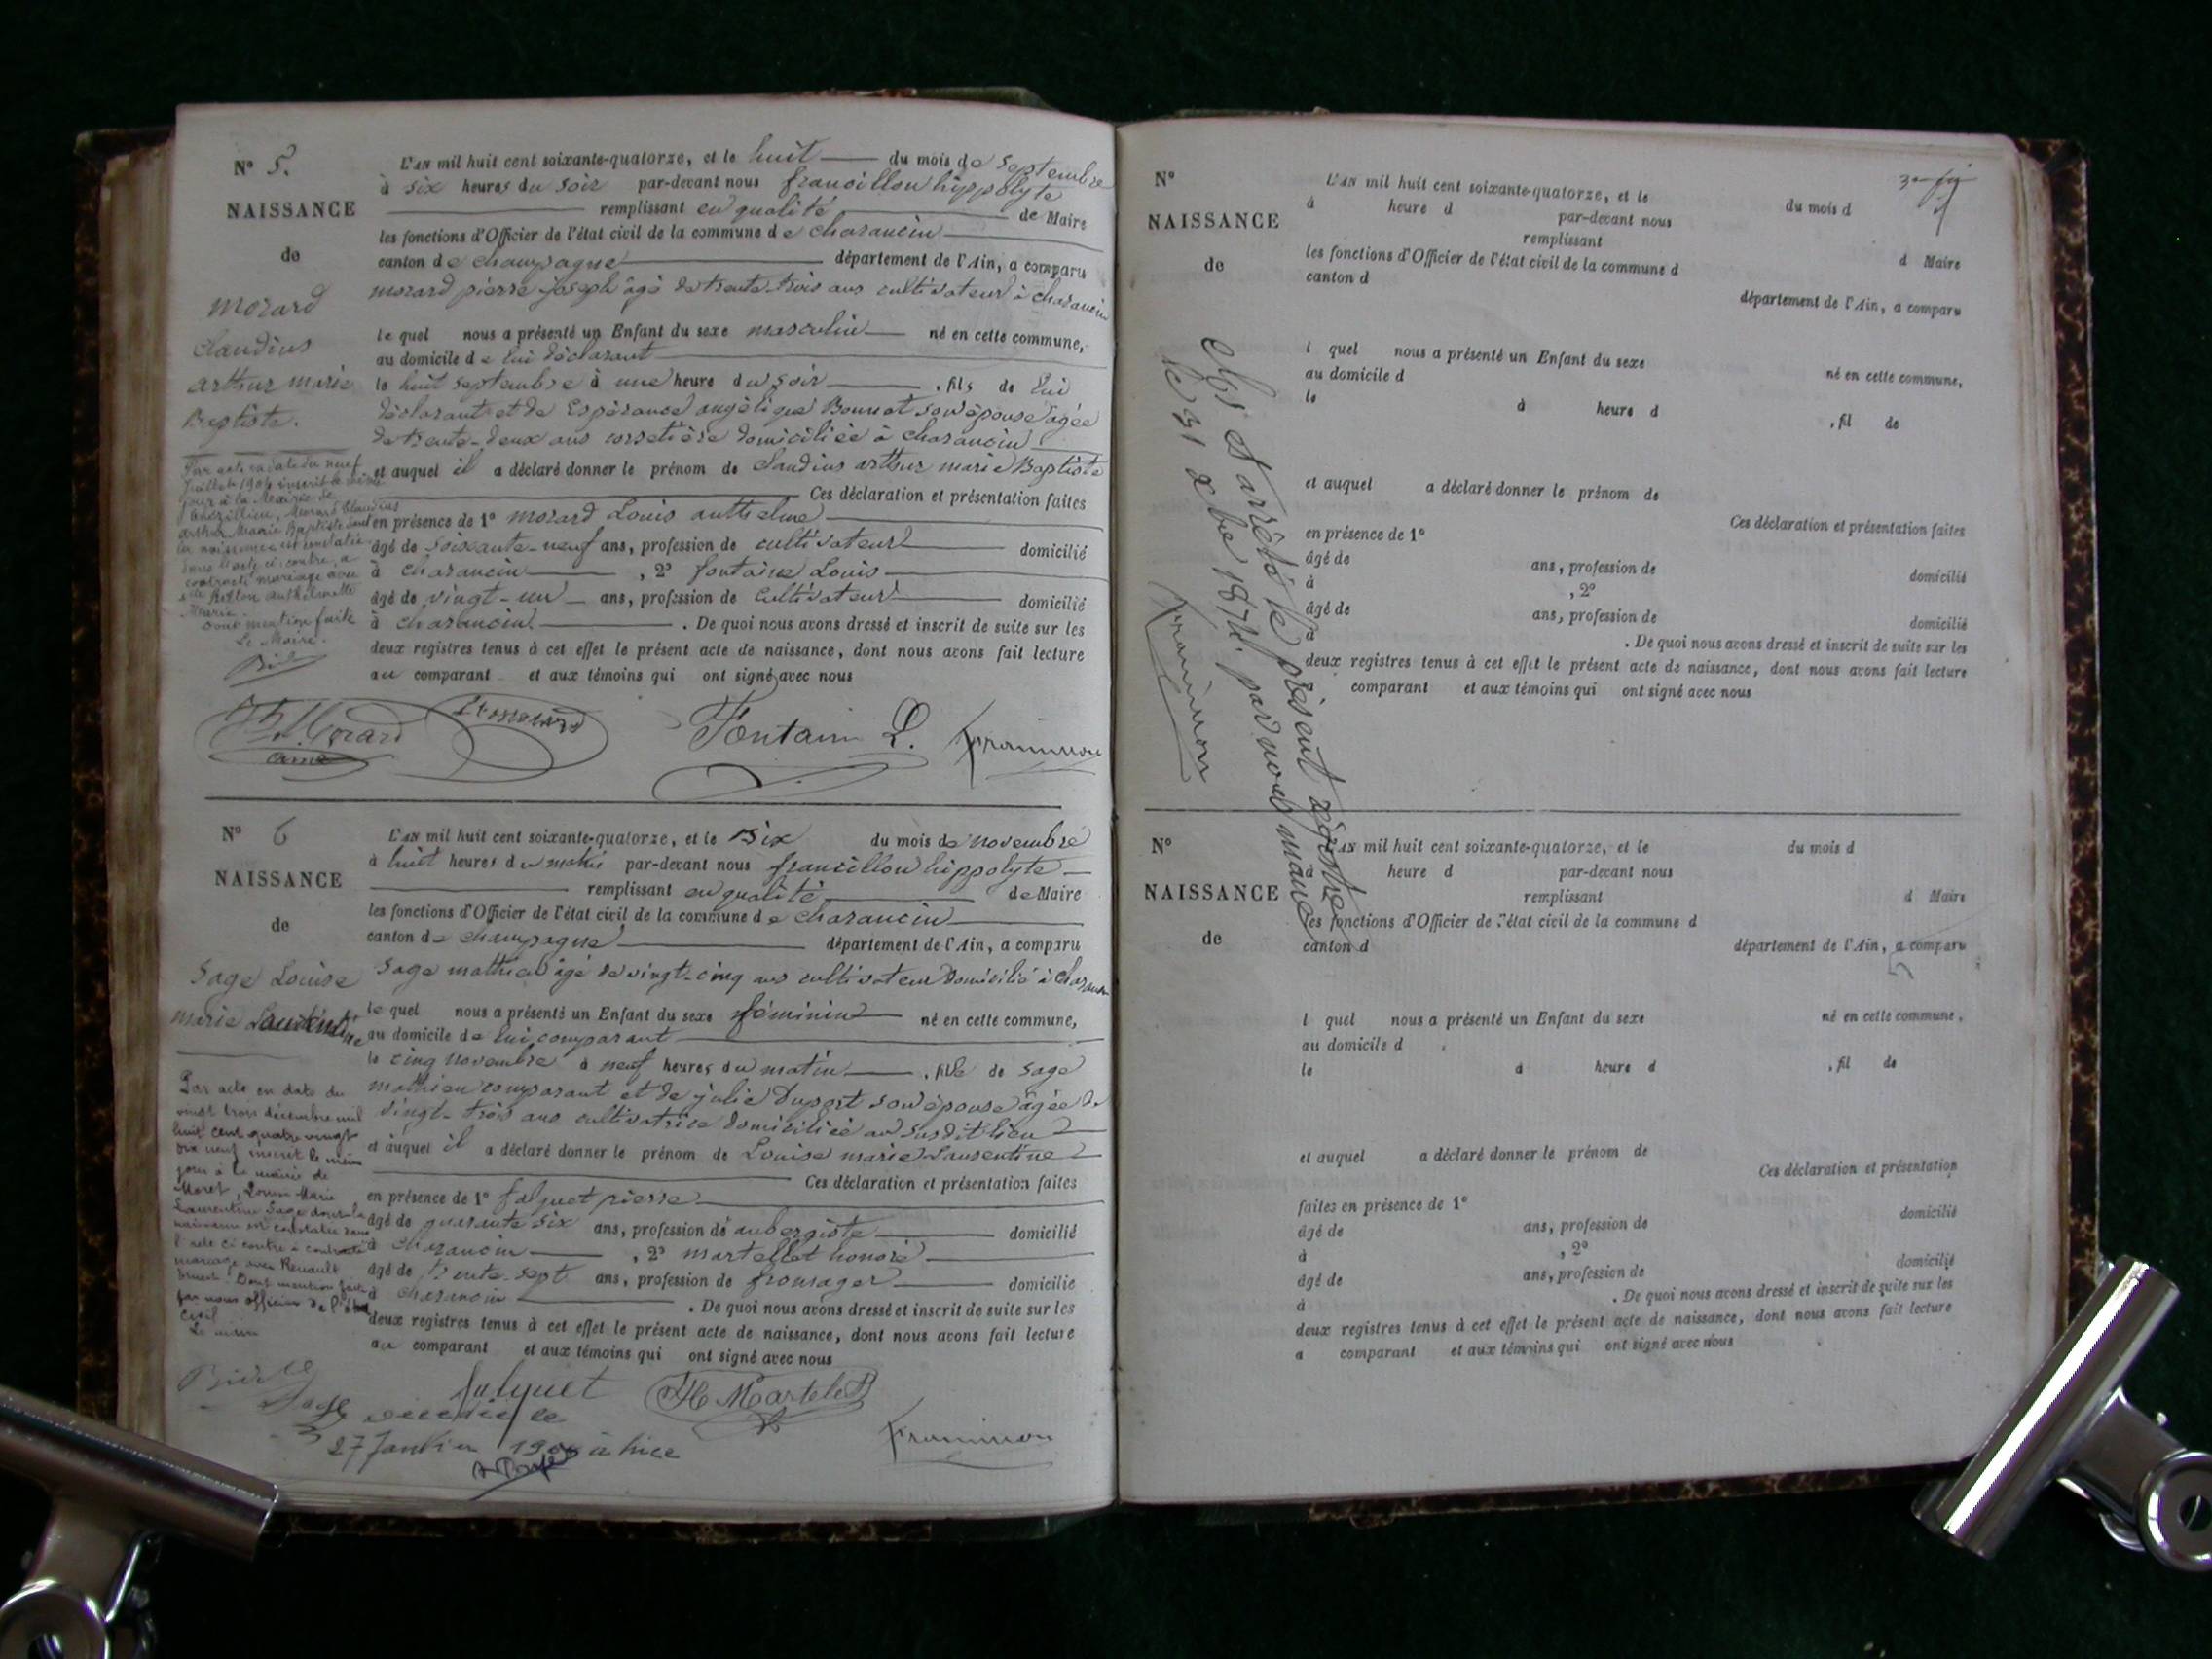 N° 5.
NAISSANCE
de
morard
Claudius
arthur marie
Baptiste.
L'AN mil huit cent soixante-quatorze, et le huit du mois de septembre
à six heures du soir par-devant nous francillon hippolyte
remplissant en qualité de Maire
les fonctions d'Officier de l'état civil de la commune de charancin
canton de champagne département de l'Ain, a comparu
morard pierre joseph âgé de trente-trois ans cultivateur à charancin
le quel nous a présenté un Enfant du sexe masculin né en cette commune,
au domicile de lui déclarant
le huit septembre à une heure du soir , fils de lui
déclarant et de Espérance angélique Bonnot son épouse âgée
de trente-deux ans corsetière domiciliée à charancin
et auquel il a déclaré donner le prénom de Claudius arthur marie Baptiste
Ces déclaration et présentation faites
en présence de 1° morard Louis anthelme
âgé de soixante-neuf ans, profession de cultivateur domicilié
à charancin , 2° fontaine Louis
âgé de vingt-un ans, profession de cultivateur domicilié
à charancin . De quoi nous avons dressé et inscrit de suite sur les
deux registres tenus à cet effet le présent acte de naissance, dont nous avons fait lecture
au comparant et aux témoins qui ont signé avec nous
Par acte en date du neuf
Juillet 1904 inscrit le même
jour à la Mairie de
Morard Claudius
arthur Marie Baptiste dont
la naissance est constatée
dans l'acte ci-contre, a
contracté mariage avec
anthelmette
Marie
Dont mention faite
Le Maire.
Morard
Fontaine L.
francillon
N° 6
NAISSANCE
de
Sage Louise
marie Laurentine
L'AN mil huit cent soixante-quatorze, et le six du mois de novembre
à huit heures du matin par-devant nous francillon hippolyte
remplissant en qualité de Maire
les fonctions d'Officier de l'état civil de la commune de charancin
canton de champagne département de l'Ain, a comparu
Sage mathieu âgé de vingt-cinq ans cultivateur domicilié à charancin
le quel nous a présenté un Enfant du sexe féminin né en cette commune,
au domicile de lui comparant
le cinq novembre à neuf heures du matin , fille de Sage
mathieu comparant et de julie Duport son épouse âgée de
vingt-trois ans cultivatrice domiciliée au susdit lieu
et auquel il a déclaré donner le prénom de Louise marie Laurentine
Ces déclaration et présentation faites
en présence de 1° falquet pierre
âgé de quarante six ans, profession de aubergiste domicilié
à charancin , 2° martellet honoré
âgé de trente-sept ans, profession de fromager domicilié
à charancin . De quoi nous avons dressé et inscrit de suite sur les
deux registres tenus à cet effet le présent acte de naissance, dont nous avons fait lecture
au comparant et aux témoins qui ont signé avec nous
Par acte en date du
vingt trois décembre mil
huit cent quatre vingt
dix neuf inscrit le même
jour à la mairie de
Moret, Louise Marie
Laurentine Sage dont la
naissance est constatée dans
l'acte ci contre a contracté
mariage avec Renault
Ernest. Dont mention faite
par nous officier de l'état
civil
Le maire
falquet
H Martelet
Sage décédée le
27 Janvier à Nice
francillon
N°
NAISSANCE
de
L'AN mil huit cent soixante-quatorze, et le du mois d
à heure d par-devant nous
remplissant d Maire
les fonctions d'Officier de l'état civil de la commune d
canton d département de l'Ain, a comparu
l quel nous a présenté un Enfant du sexe né en cette commune,
au domicile d
le à heure d , fil de
et auquel a déclaré donner le prénom de
Ces déclaration et présentation faites
en présence de 1°
âgé de ans, profession de domicilié
à , 2°
âgé de ans, profession de domicilié
à . De quoi nous avons dressé et inscrit de suite sur les
deux registres tenus à cet effet le présent acte de naissance, dont nous avons fait lecture
comparant et aux témoins qui ont signé avec nous
Clos et arrêté le présent registre
le 31 Xbre 1874. par nous maire
francillon
N°
NAISSANCE
de
L'AN mil huit cent soixante-quatorze, et le du mois d
à heure d par-devant nous
remplissant d Maire
les fonctions d'Officier de l'état civil de la commune d
canton d département de l'Ain, a comparu
l quel nous a présenté un Enfant du sexe né en cette commune,
au domicile d
le à heure d , fil de
et auquel a déclaré donner le prénom de
Ces déclaration et présentation
faites en présence de 1°
âgé de ans, profession de domicilié
à , 2°
âgé de ans, profession de domicilié
à . De quoi nous avons dressé et inscrit de suite sur les
deux registres tenus à cet effet le présent acte de naissance, dont nous avons fait lecture
a comparant et aux témoins qui ont signé avec nous